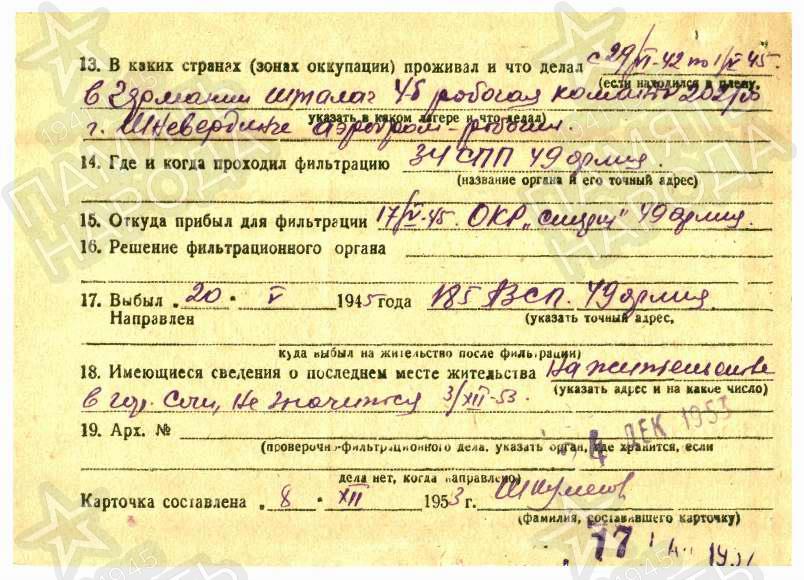 13. В каких странах (зонах оккупации) проживал и что делал с 29/VI-42 по 1/V 45.
(если находился в плену,
в Германии шталаг рабочая
указать в каком лагере и что делал)
г. Шневердинге аэродром-рабочий.
14. Где и когда проходил фильтрацию 34 СПП 49 армия.
(название органа и его точный адрес)
15. Откуда прибыл для фильтрации 17/V-45. ОКР „Смерш" 49 армия.
16. Решение фильтрационного органа
17. Выбыл „20" V 1945 года 185 АЗСП. 49 армия.
Направлен (указать точный адрес,
куда выбыл на жительство после фильтрации)
18. Имеющиеся сведения о последнем месте жительства На жительстве
(указать адрес и на какое число)
в гор. Сочи, не значится 3/XII-53.
4 ДЕК 1953
19. Арх. №
(проверочно-фильтрационного дела, указать орган, где хранится, если
дела нет, когда направлено)
Карточка составлена „8" XII 1953 г.
(фамилия, составившего карточку)
ПАМЯТЬ НАРОДА